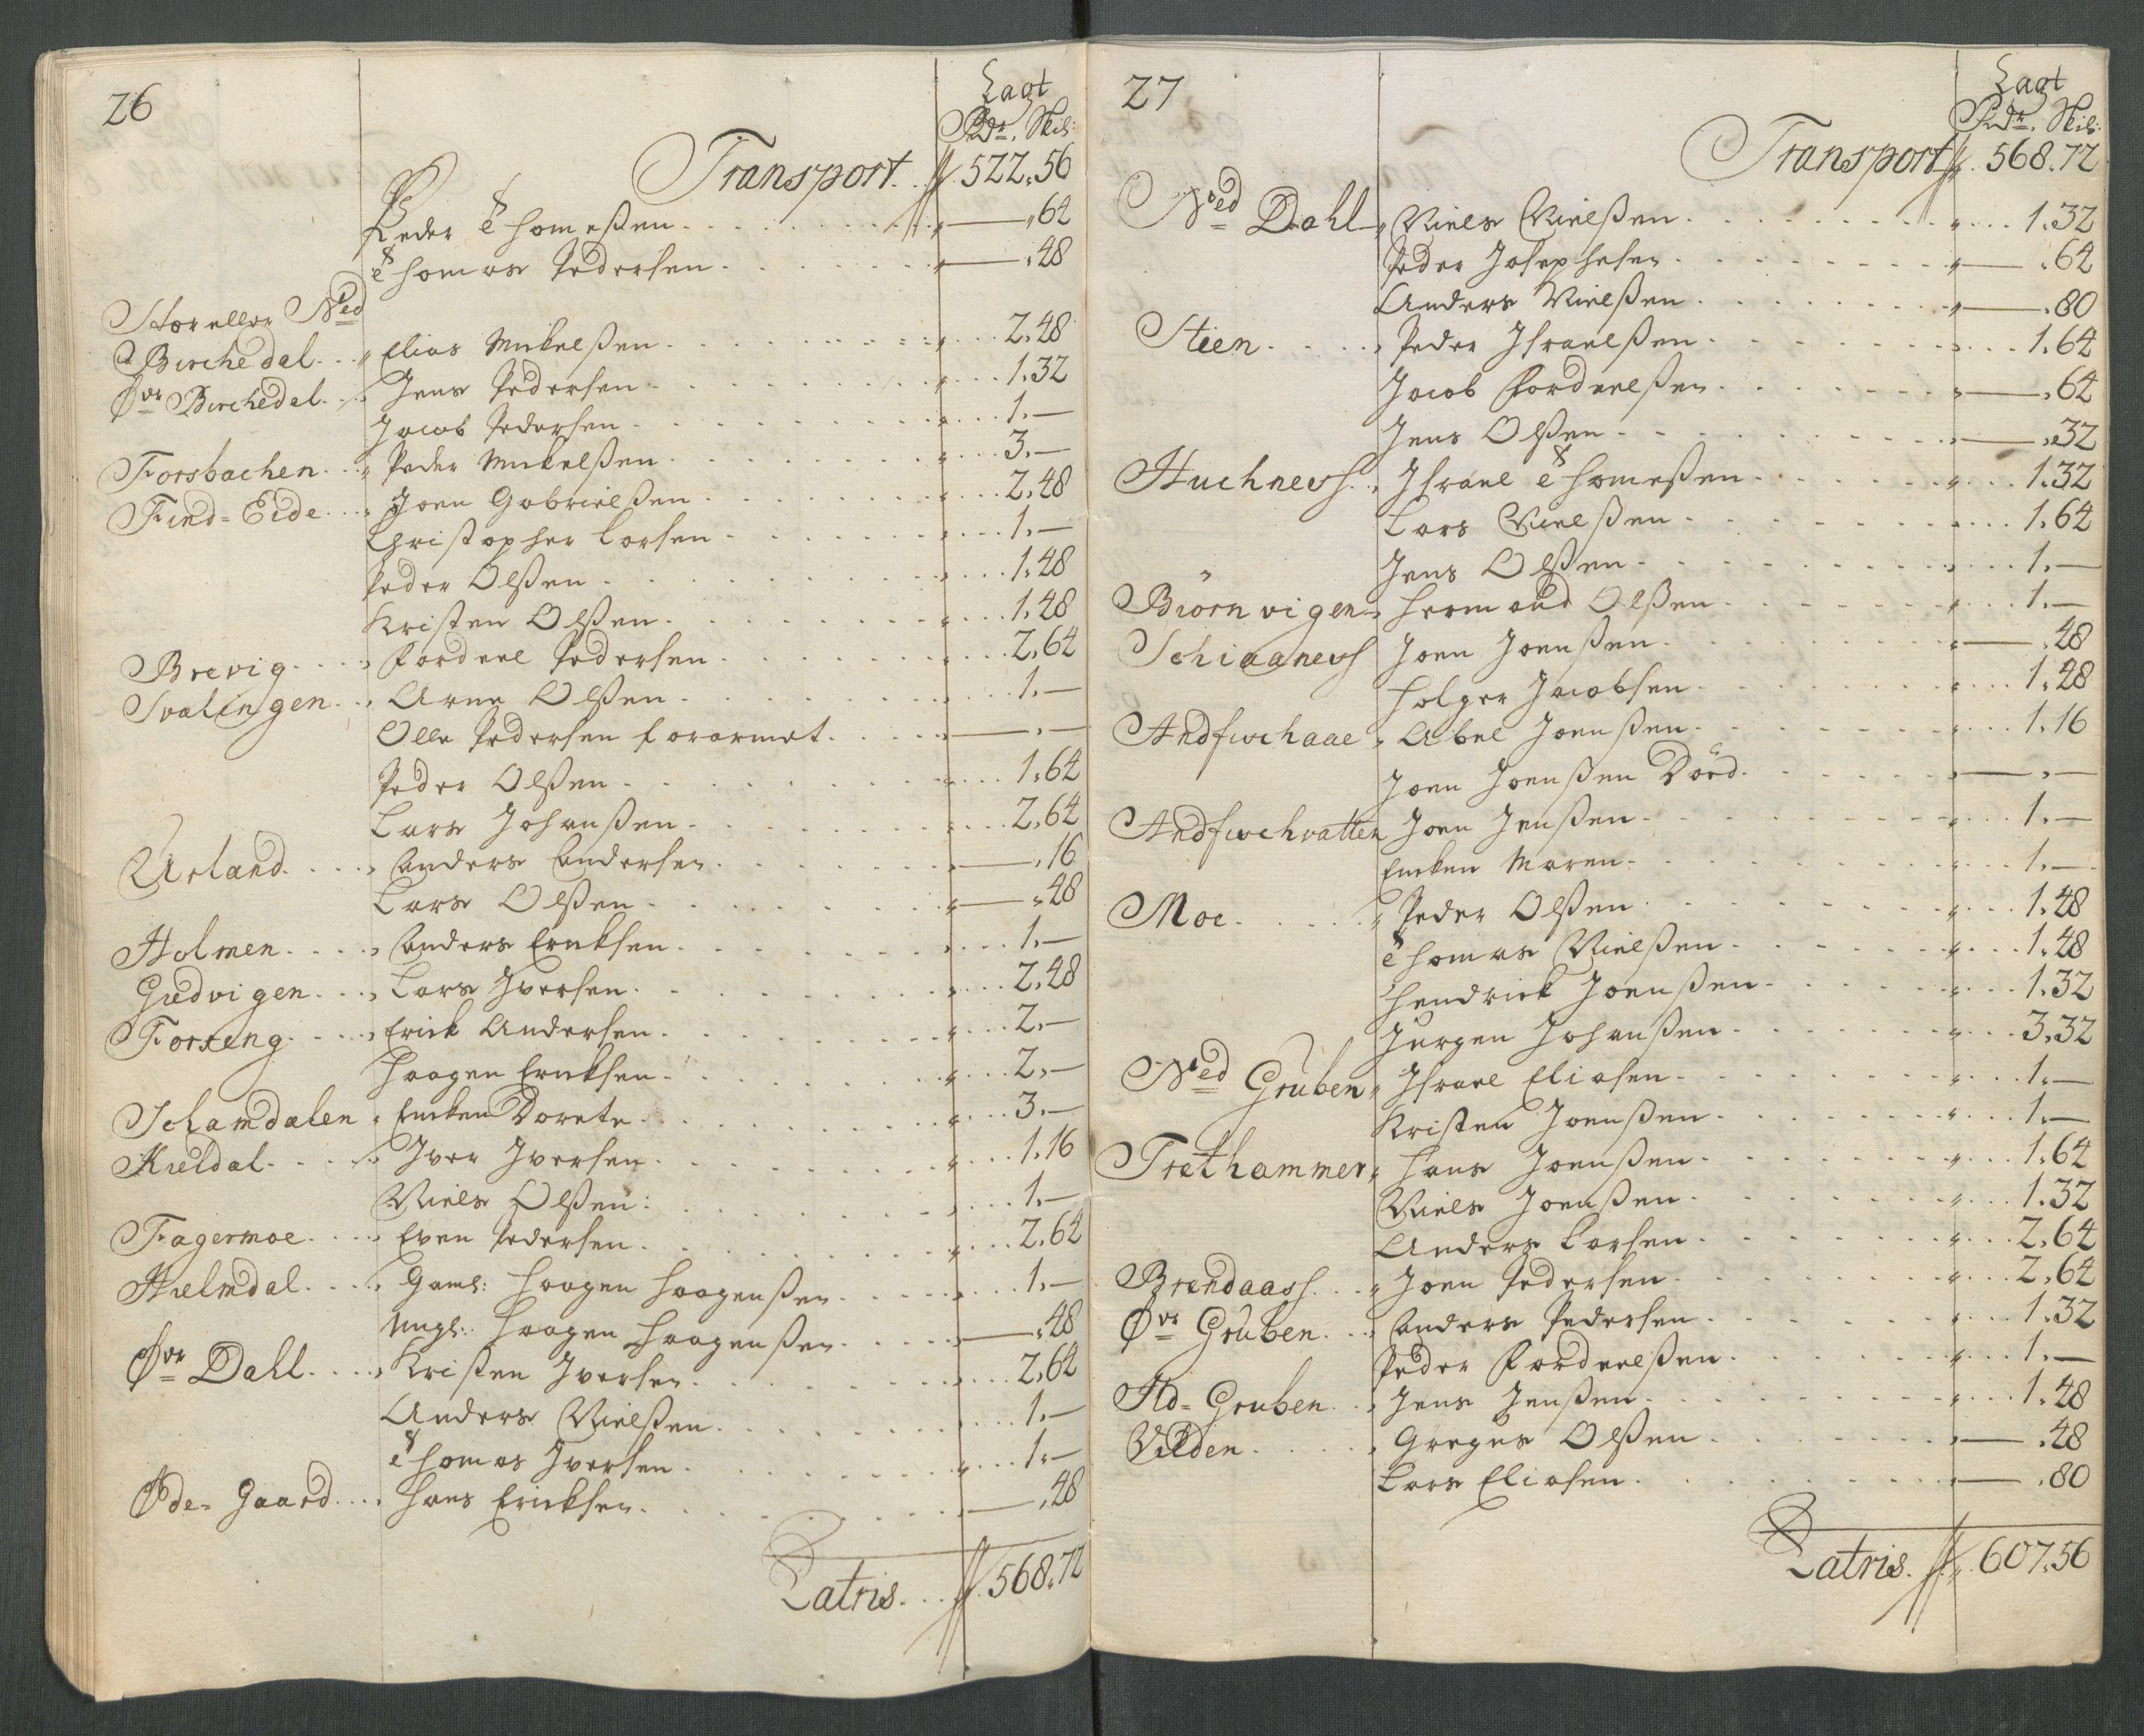 26
Lagt
Rdr. Skil:
Transport. 522.56
Peder Thomeßen . . . ,64
Thomas Pedersen . . . ,48
Storellvr Ned
Birchedal . . . Elias Mikelßen . . . 2.48
Øvr Birchedal . . . Jens Pedersen . . . 1.32
Jacob Pedersen . . . 1.—
Forsbachen . . . Peder Mikelßen . . . 3.—
Find=Eide . . . Joen Gabrielßen . . . 2.48
Christopher Larsen . . . 1.—
Peder Olßen . . . 1.48
Kristen Olßen . . . 1.48
Brevig . . . Fordeel Pedersen . . . 2.64
Svalingen . . . Arne Olßen . . . 1.—
Olle Pedersen forarmet . . . — . —
Peder Olßen . . . 1.64
Lars Johanßen . . . 2.64
Urland . . . Anders Andersen . . . ,16
Lars Olßen . . . ,48
Holmen . . . Anders Ericksen . . . 1.—
Gudvigen . . . Lars Iversen . . . 2.48
Forseng . . . Erick Andersen . . . 2.—
Haagen Ericksen . . . 2.—
Schamdalen . Encken Dorete . . . 3.—
Kieldal . . . Iver Iversen . . . 1.16
Niels Olßen . . . 1.—
Fagermoe . . . Even Pedersen . . . 2.64
Hielmdal . . . Gaml: Haagen Haagenßen . . . 1.—
Ungl: Haagen Haagenßen . . . ,48
Øvr Dahl . . . Kristen Iversen . . . 2.64
Anders Nielßen . . . 1.—
Thomas Iversen . . . 1.—
Øde=Gaard . . . Hans Ericksen . . . ,48
Latris . . . 568.72
27
Lagt
Rdr. Skil:
Transport 568.72
Ned Dahl Niels Nielßen . . . 1.32
Peder Josephsen . . . .64
Anders Nielßen . . . .80
Steen . . . Peder Israelßen . . . 1.64
Jacob Fordeelßen . . . .64
Jens Olßen . . . .32
Huchnes . Israel Thomeßen . . . 1.32
Lars Nielßen . . . 1.64
Jens Olßen . . . 1.—
Biørnvigen Hermand Olßen . . . 1.—
Schiaanes Joen Joenßen . . . .48
Holger Jacobsen . . . 1.48
Andfischaae Abel Joenßen . . . 1.16
Joen Joenßen Död . . . — . —
Andfischvatten Joen Jenßen . . . 1.—
Encken Maren . . . 1.—
Moe . . . Peder Olßen . . . 1.48
Thomas Nielßen . . . 1.48
Hendrick Joenßen . . . 1.32
Jurgen Johanßen . . . 3.32
Ned Gruben Israel Eliasen . . . 1.—
Kristen Joenßen . . . 1.—
Trethammer Hans Joenßen . . . 1.64
Niels Joenßen . . . 1.32
Anders Larsen . . . 2.64
Brendaass . . . Joen Pedersen . . . 2.64
Øvr Gruben . . . Anders Pedersen . . . 1.32
Peder Fordeelßen . . . 1.—
Ild=Gruben . . . Jens Jenßen . . . 1.48
Vilden . . . Gregus Olßen . . . .48
Lars Eliasen . . . .80
Latris. 607.56